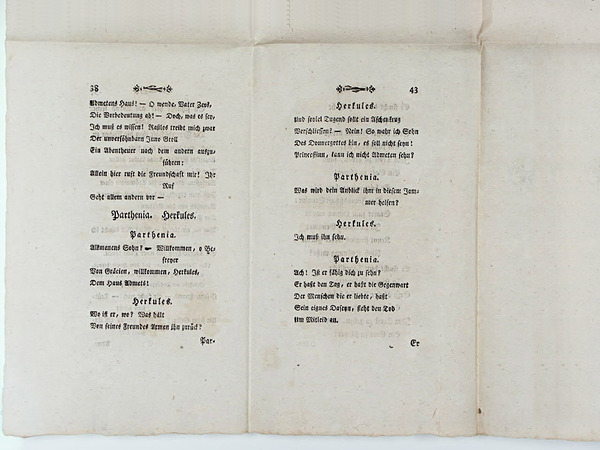 38
Admetens Haus! — O wende, Vater Zevs,
Die Vorbedeutung ab! — Doch, was es sey,
Ich muß es wissen! Rastlos treibt mich zwar
Der unversöhnbarn Juno Groll
Ein Abentheuer nach dem andern auszu-
führen:
Allein hier ruft die Freundschaft mir! Ihr
Ruf
Geht allem andern vor —
Parthenia. Herkules.
Parthenia.
Alkmenens Sohn? — Willkommen, o Be-
freyer
Von Gräcien, willkommen, Herkules,
Dem Haus Admets!
Herkules.
Wo ist er, wo? Was hält
Von seines Freundes Armen ihn zurück?
Par-
43
Herkules.
Und soviel Tugend sollt ein Aschenkrug
Verschliessen? — Nein! So wahr ich Sohn
Des Donnergottes bin, es soll nicht seyn!
Prinzessinn, kann ich nicht Admeten sehn?
Parthenia.
Was wird dein Anblick ihm in diesem Jam-
mer helfen?
Herkules.
Ich muß ihn sehn.
Parthenia.
Ach! Ist er fähig dich zu sehn?
Er haßt den Tag, er haßt die Gegenwart
Der Menschen die er liebte, haßt
Sein eignes Daseyn, fleht den Tod
Um Mitleid an.
Er